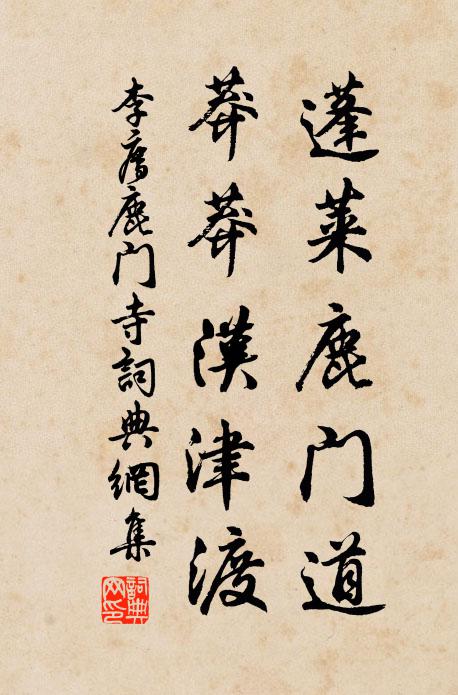 蓬莱鹿门道
莽莽漢津渡
李廌鹿门寺詞典網集
詞典
网印